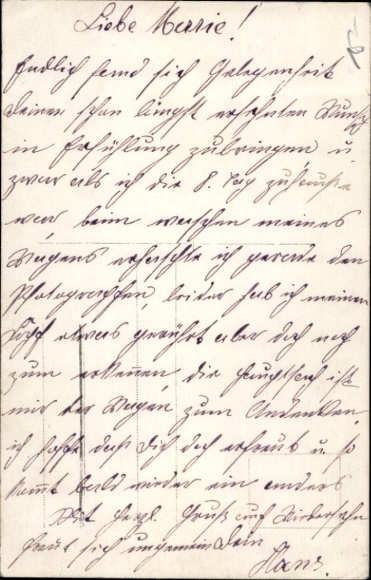 Liebe Merrie!
Endlich fand sich Gelegenheit
Deinen schon längst ersehnten Wunsch
in Erfühlung zubringen u.
zwar als ich die 8. Tag zuhause
war, beim waschen meines
Wagens erhaschte ich gerade den
Photographen, leider hab ich meinen
Kopf etwas gerührt aber doch noch
zum erkennen, die Hauptsach ist
mir der Wagen, zum Andenken,
ich hoffe daß Dich doch erfreut u. so
kommt bald wieder ein anders
Mit herzl. Gruß auf Wiedersehn
freut sich ungemein Dein
Hans.